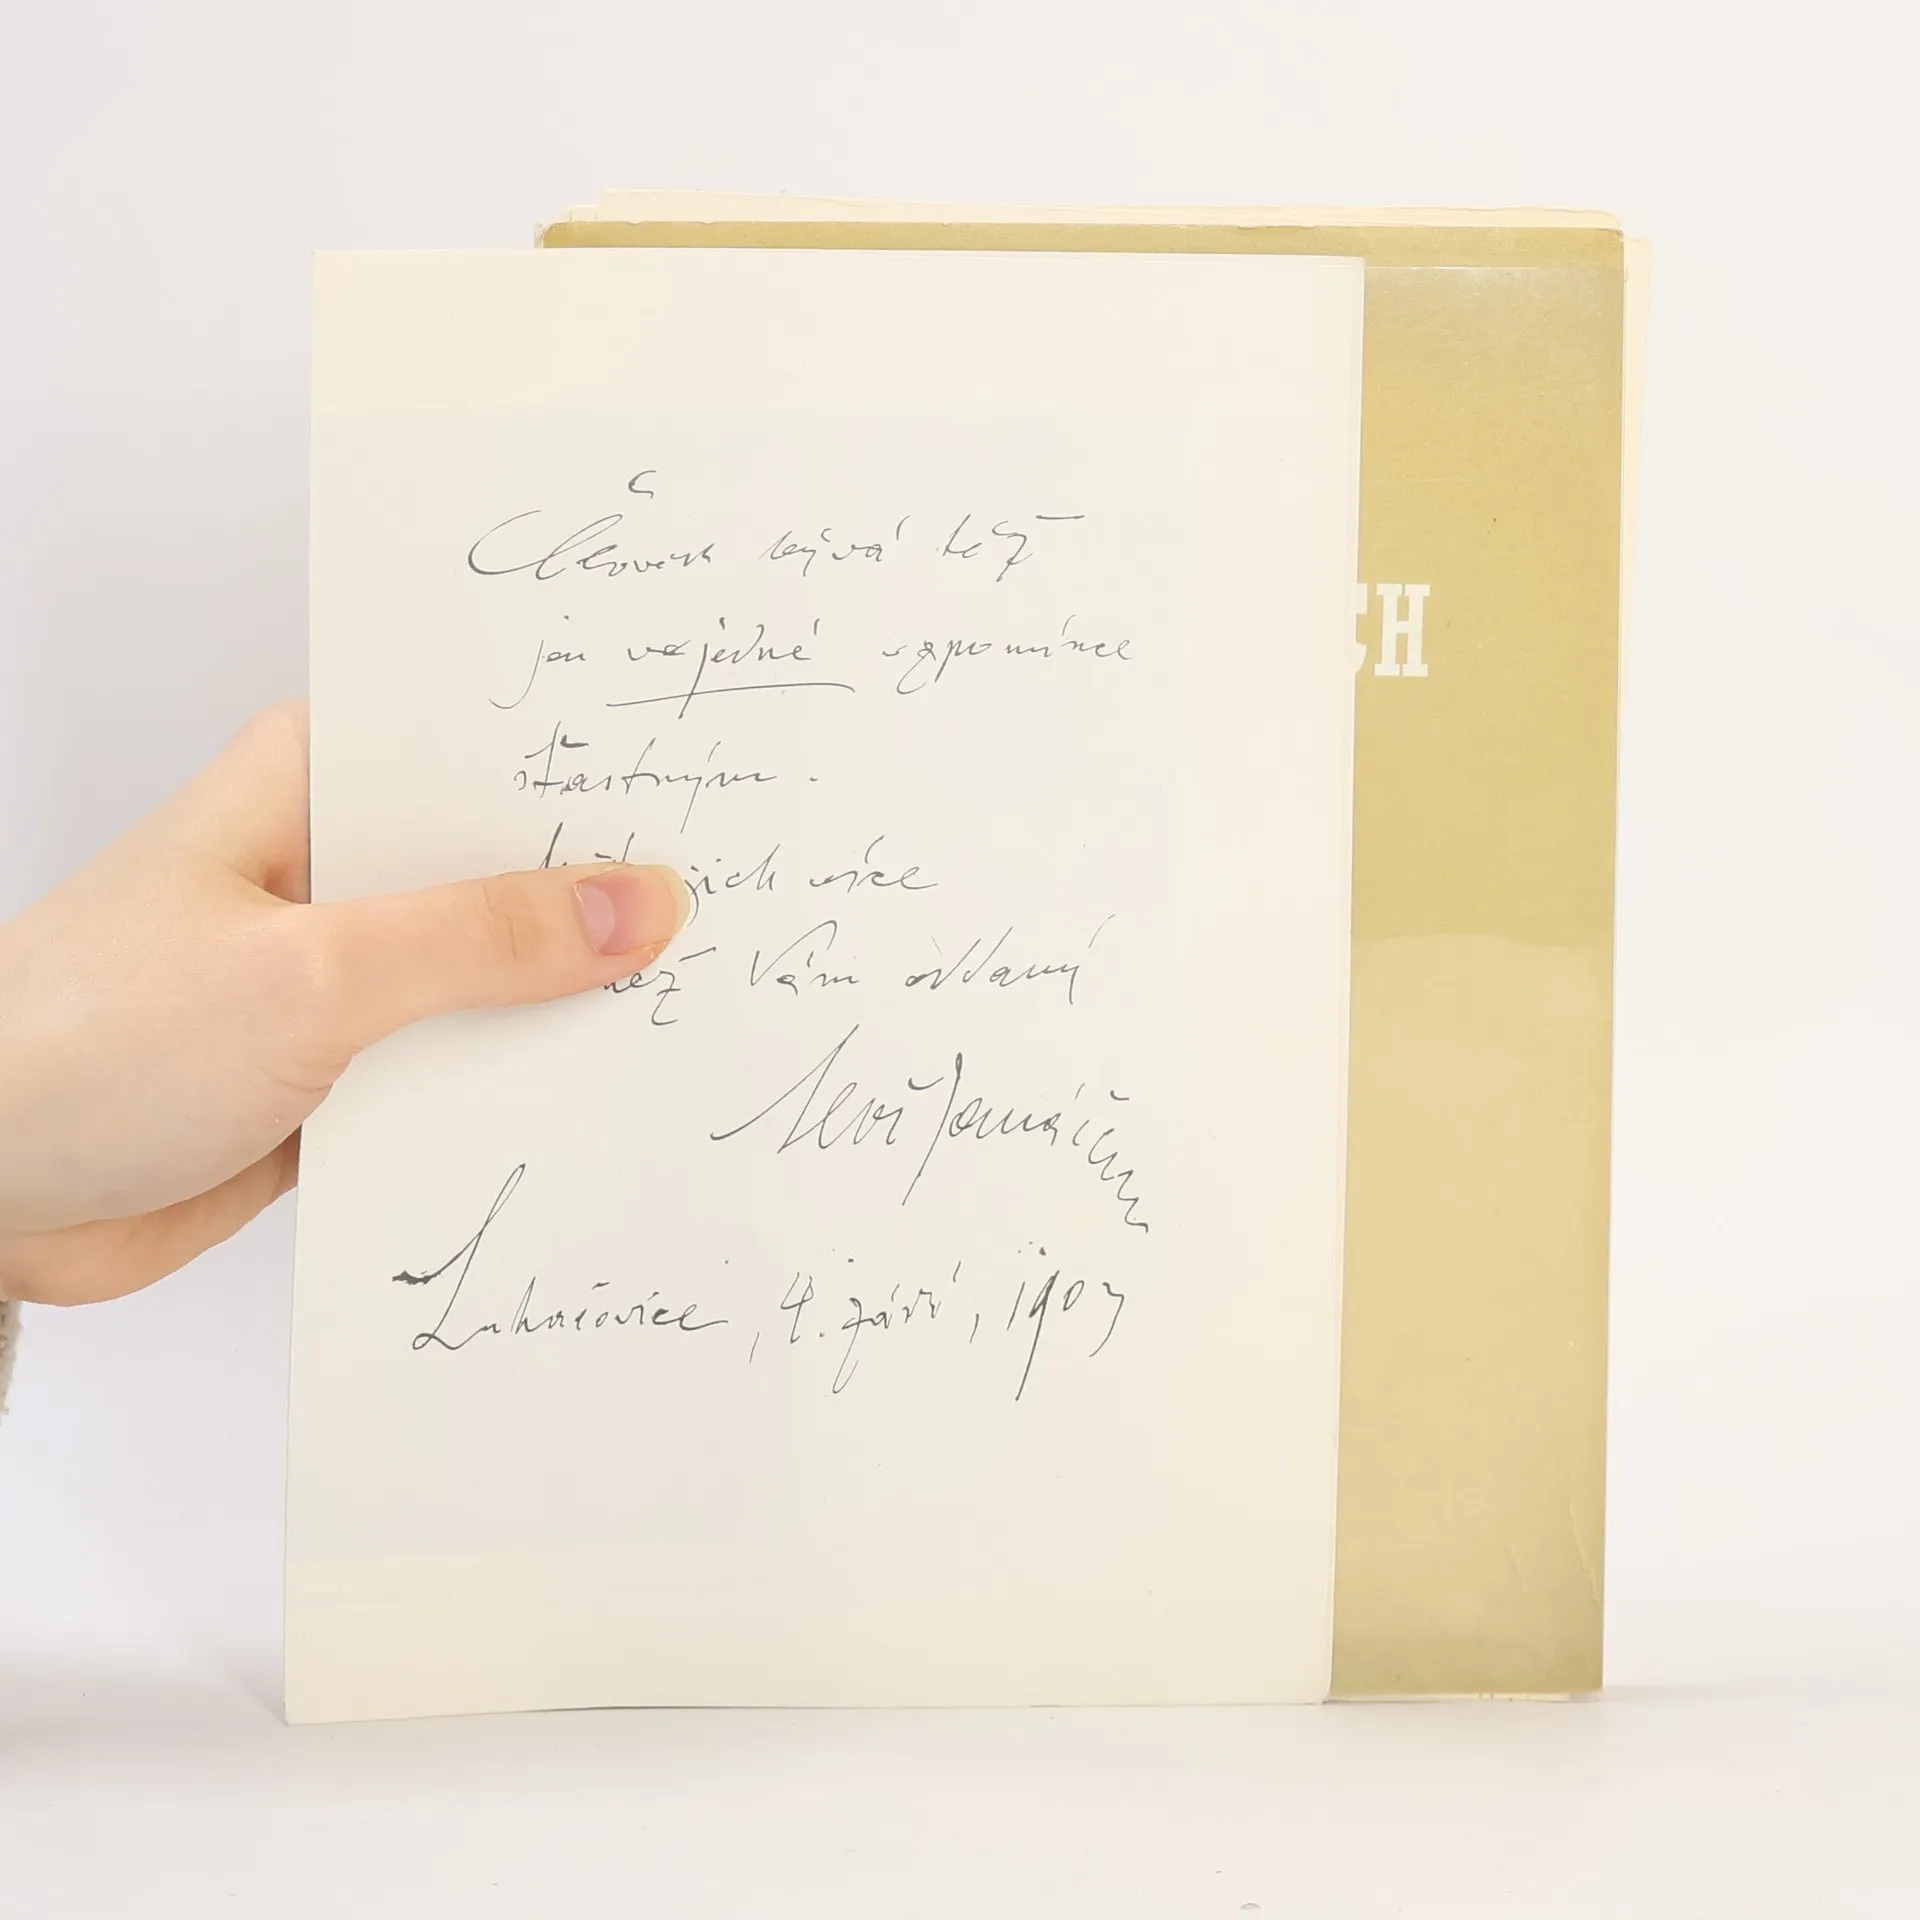 Člověk bývá též
jen ve jedné vzpomínce
šťastným.
jich více
než Vám oddaný
Leoš Janáček
Luhačovice, 4. září, 1903
CH